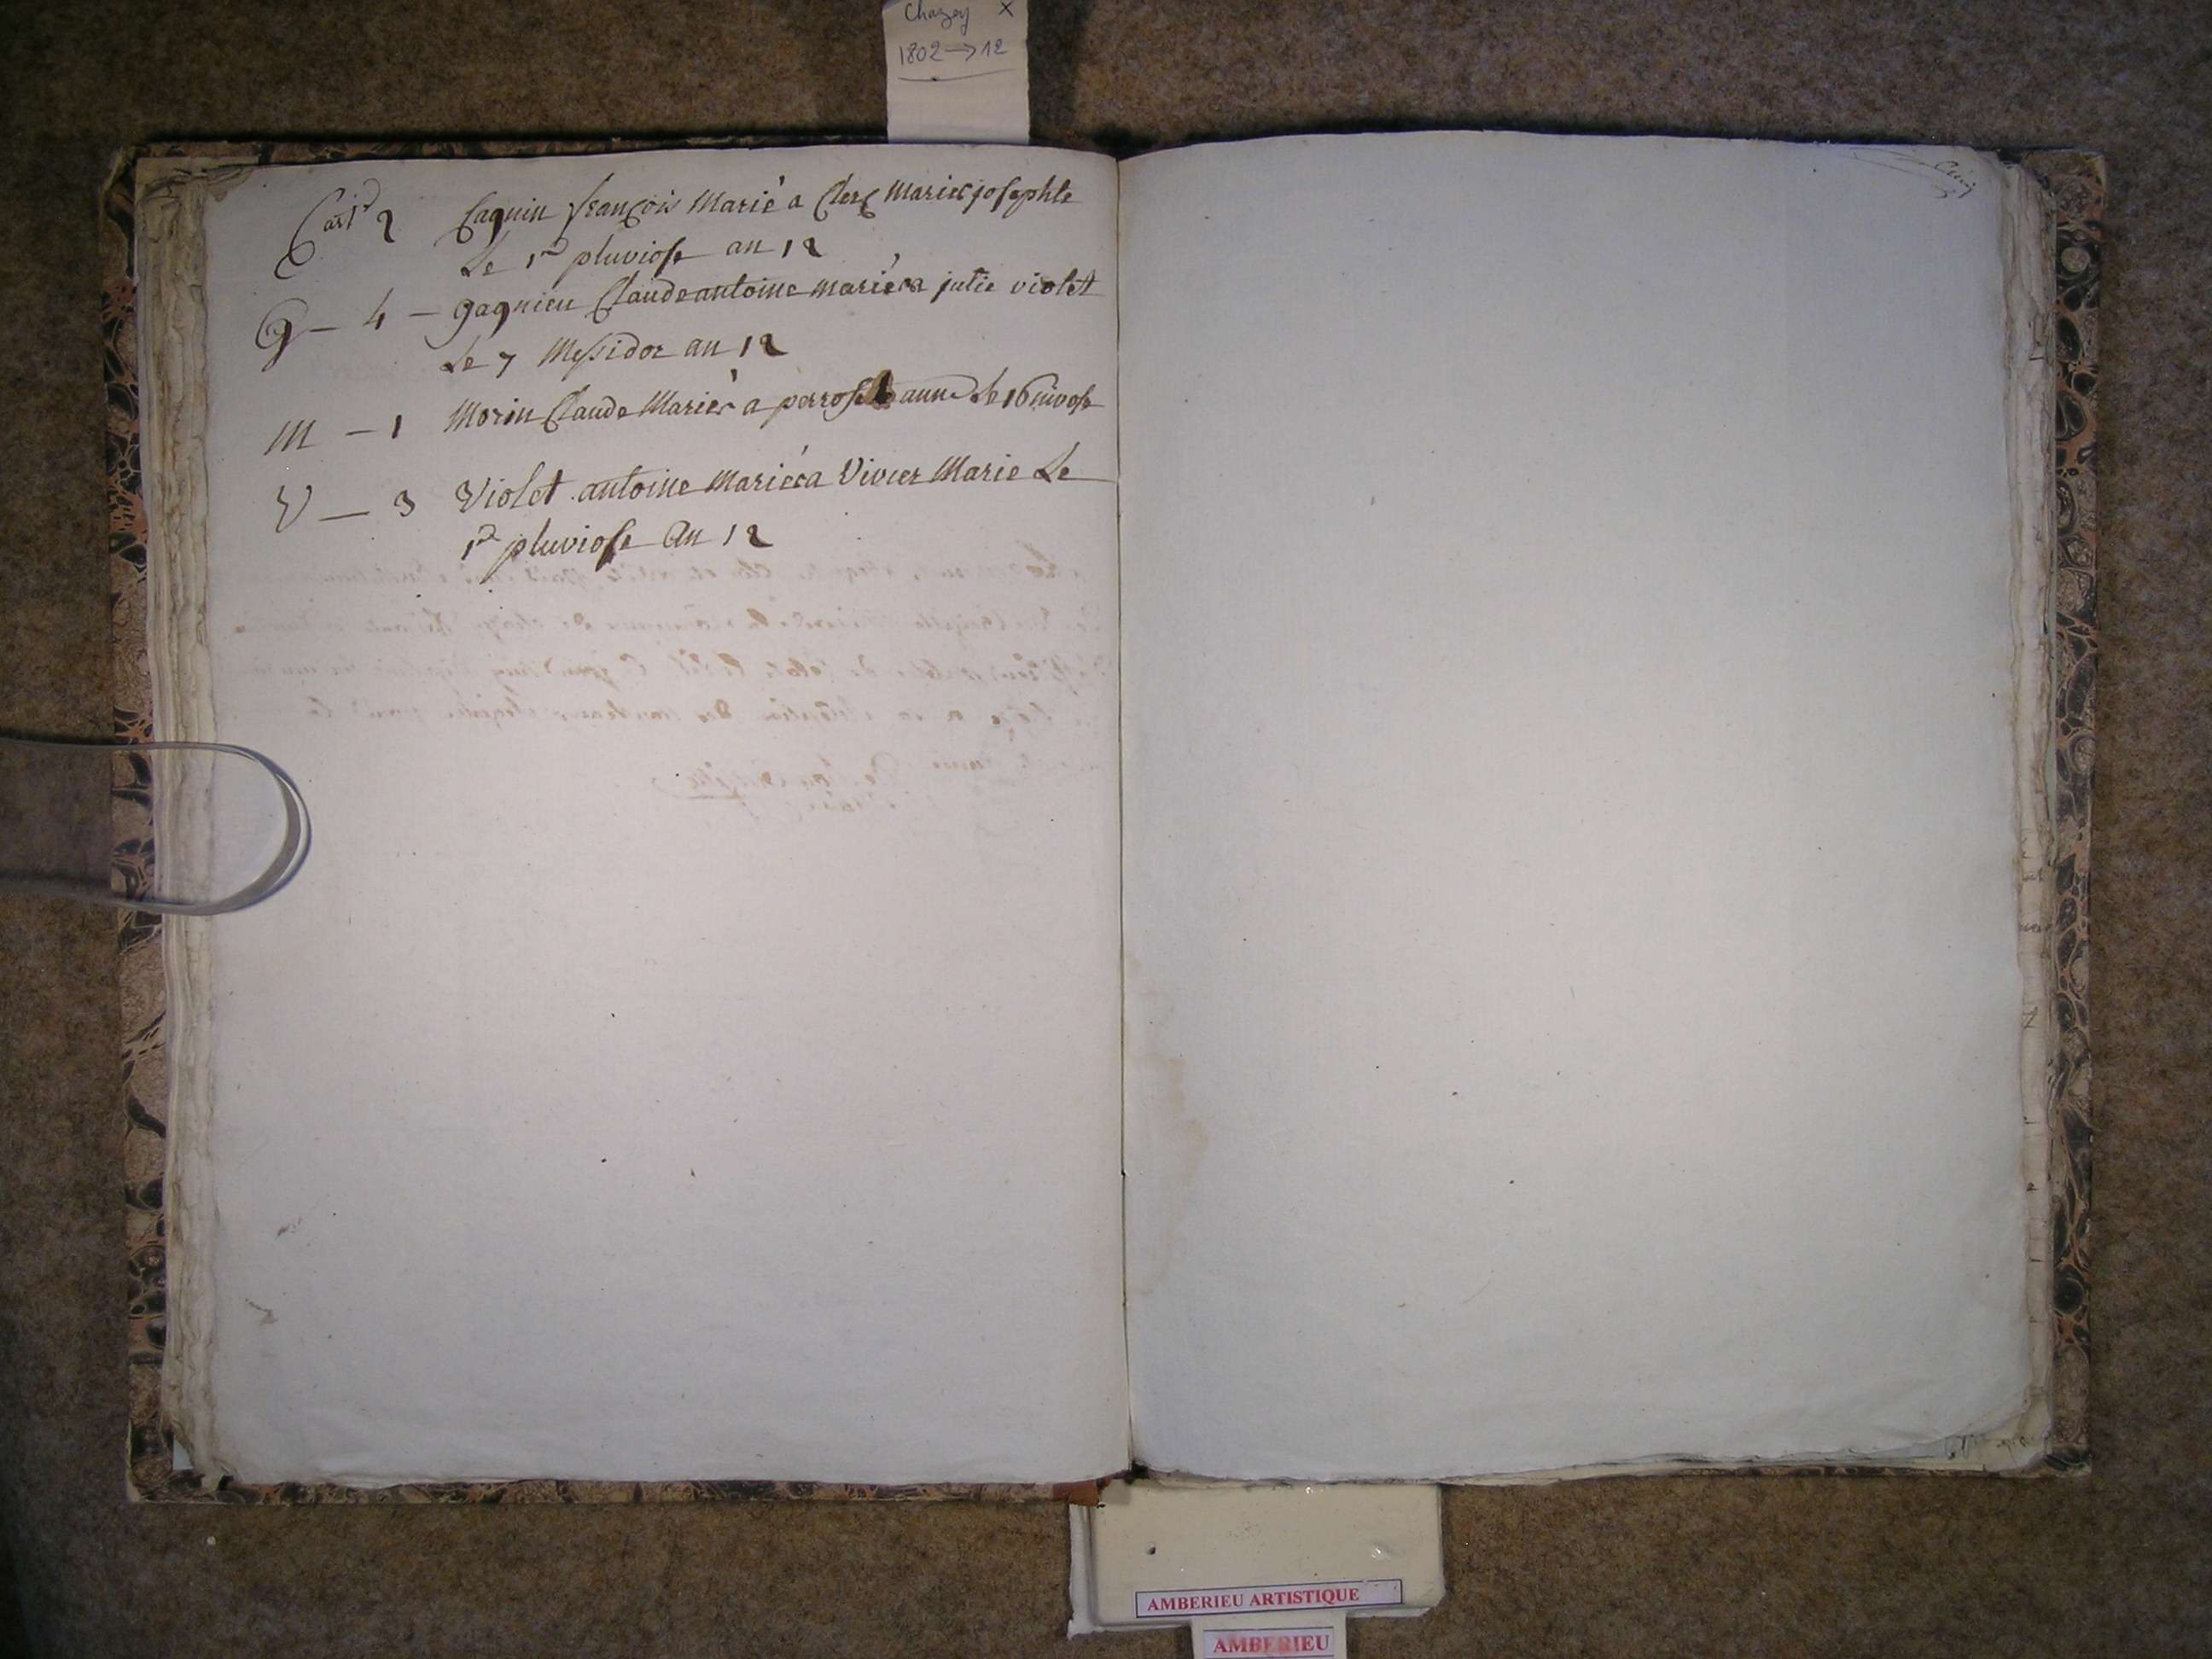 Chazey X
1802 → 12
C art 2 Caquin françois Marié a Clerc Marie josephte
Le 1er pluviose an 12
G — 4 — gagnieu Claude antoine marié a julie violet
Le 7 Messidor an 12
M — 1 Morin Claude Marié a perroset anne Le 16 nivose
V — 3 Violet antoine Marié a Vivier Marie Le
1er pluviose An 12
Cinq
AMBERIEU ARTISTIQUE
AMBERIEU